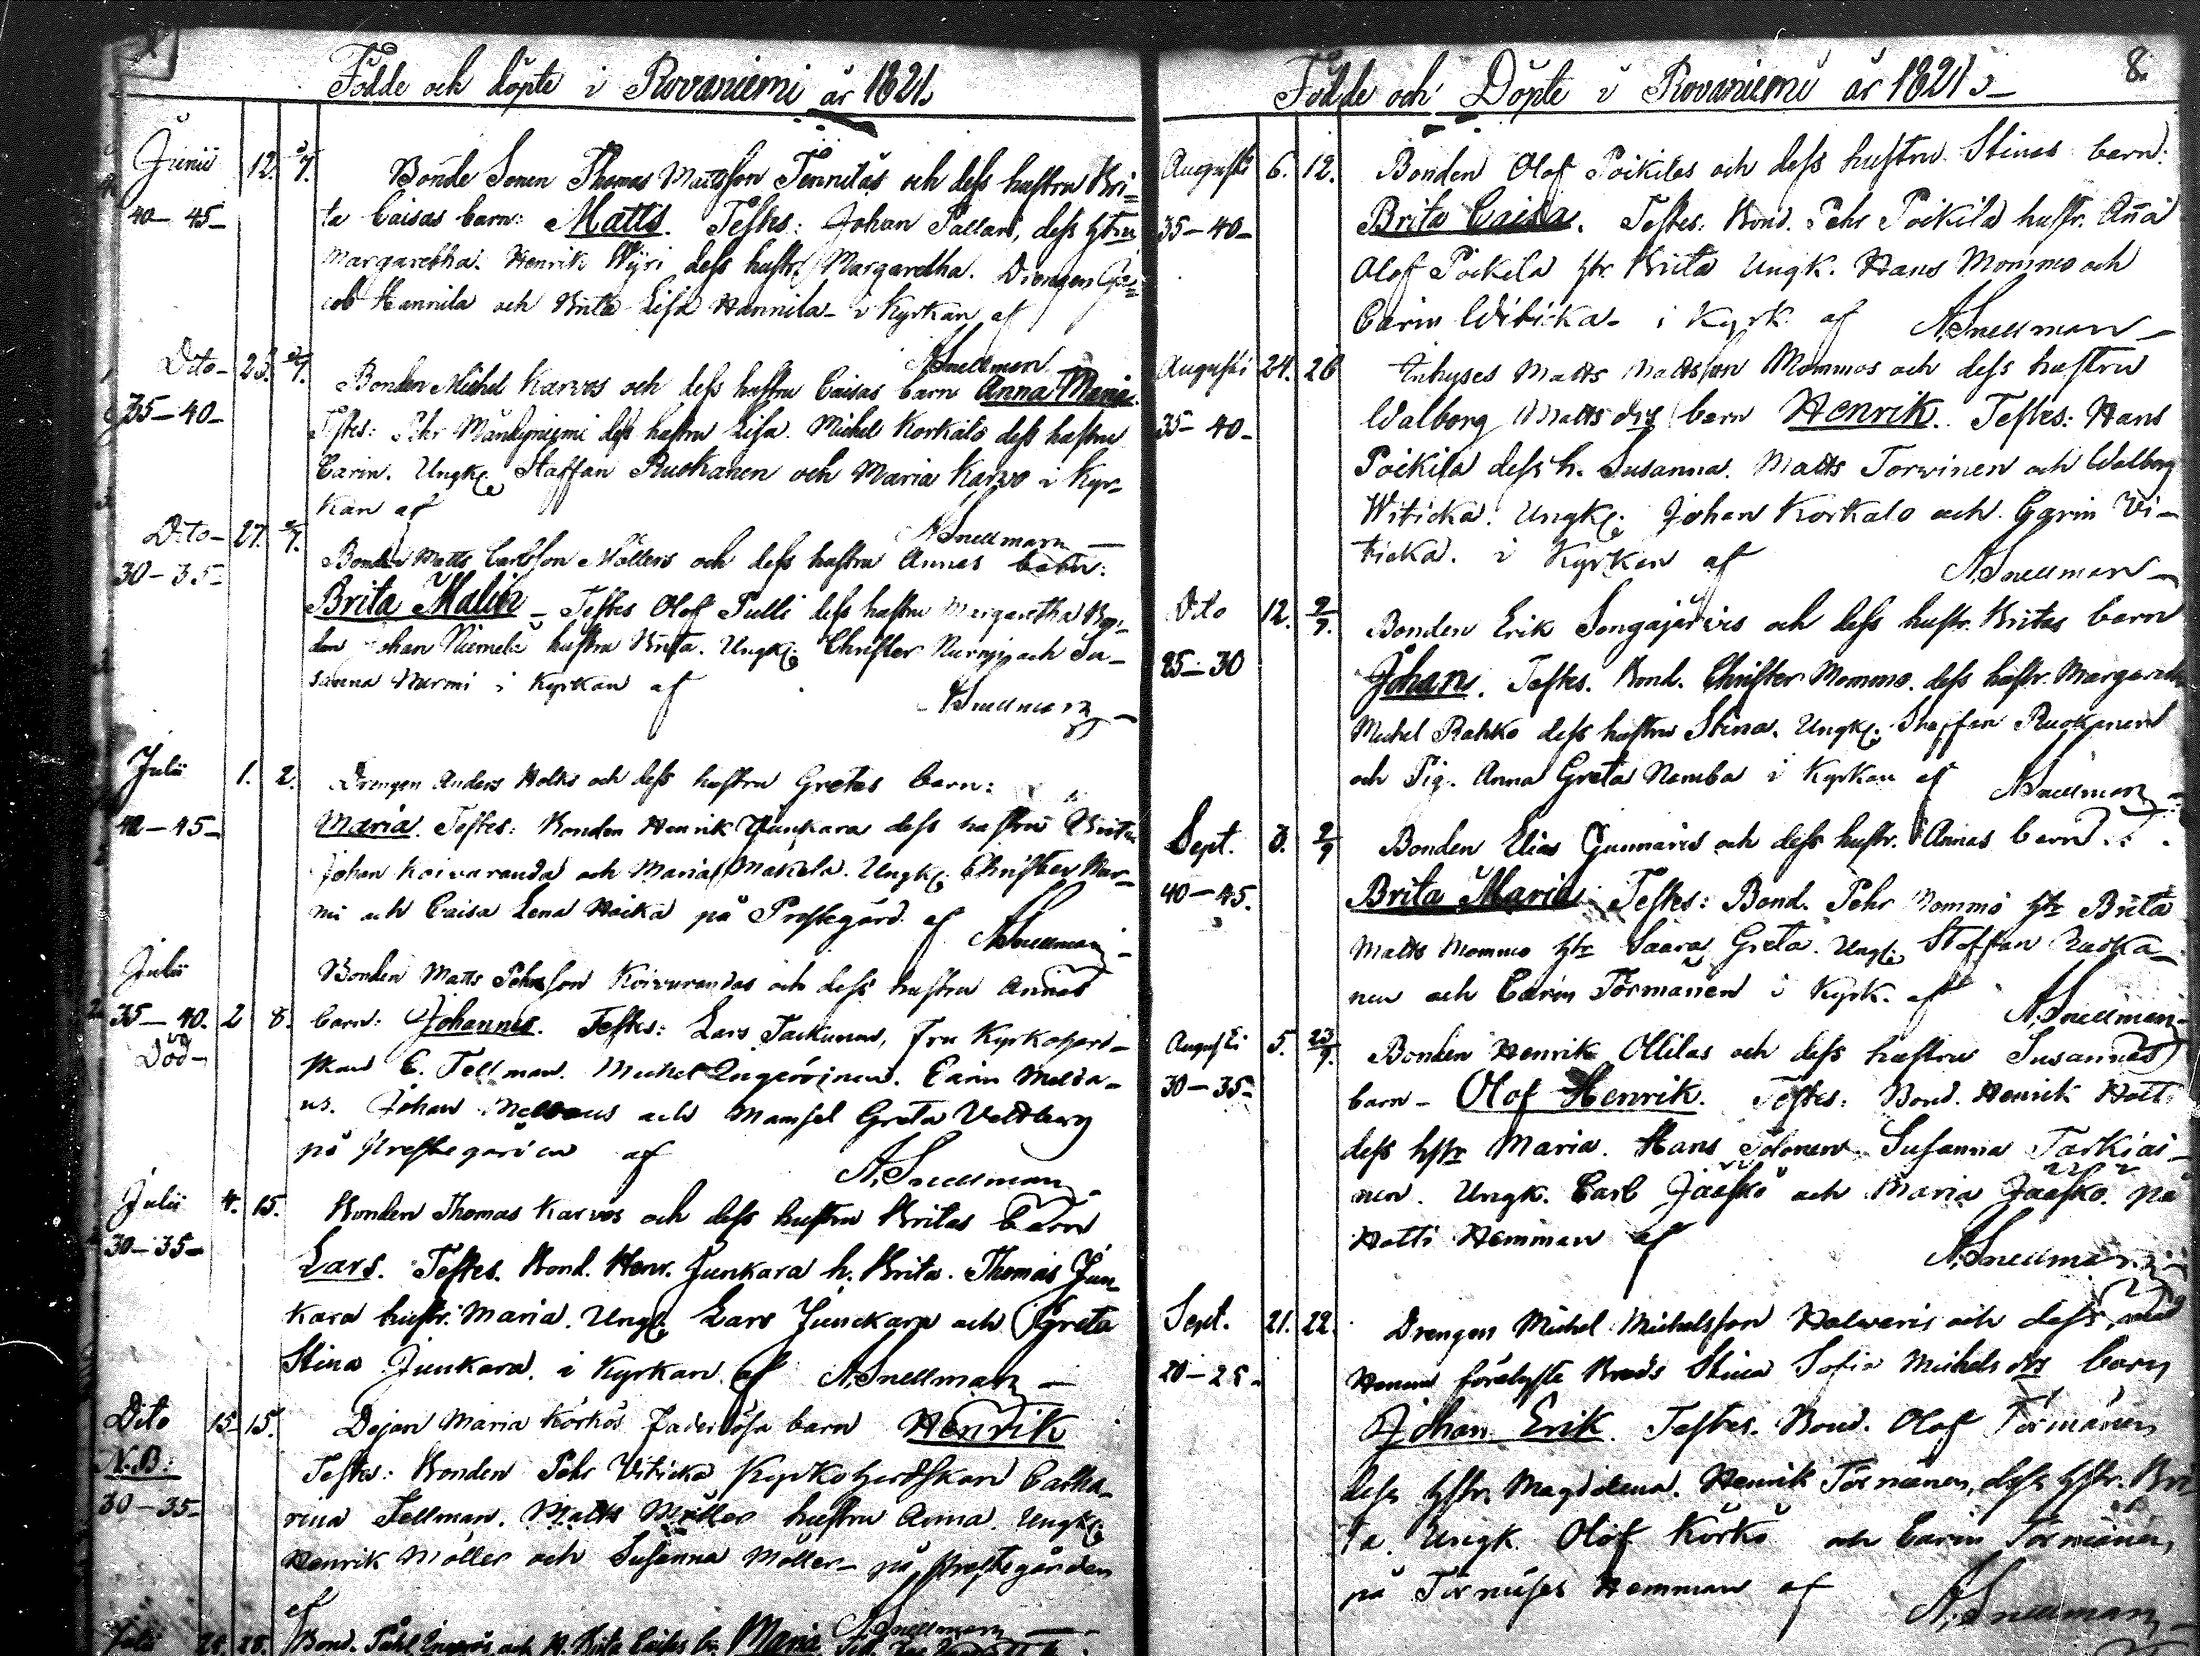 Födde och döpte i Rovaniemi år 1821.
Junii 12. 3/7. Bonde Sonen Thomas Mattsson Tennilas och dess hustru Bri=
40-45- ta Caisas barn: Matts. Testes: Johan Pallari, dess hstru
Margaretha. Henrik Wÿri dess hustr. Margaretha. Drengen Ja=
cob Hannila och Brita Lisa Hannila i Kyrkan af
A Snellman
Dito- 23. /7. Bonden Michel Karvos och dess hustru Caisas barn Anna Maria.
35-40- Testes: Pehr dess hustru Lisa. Michel Korkalo dess hustru
Carin. Ungk: Staffan Ruokanen och Maria Karvo i Kyr-
kan af
A Snellman
Dito- 27. /7. Bonden Matts Carlsson Möllers och dess hustru Annas barn:
30-35- Brita Malin - Testes Olof Pulli dess hustru Margaretha Bon-
den Johan Niemelä hustru Brita. Ungk: Christer Nurmi och Su-
sanna Nurmi i Kyrkan af
A Snellman
Julii 1. 2. Drengen Anders Holks och dess hustru Gretas barn:
40-45- Maria. Testes: Bonden Henrik Junkara dess hustru Brita
Johan Koivuranda och Maria Makela. Ungk: Christer Nur-
mi och Caisa Lena Hoicka på Prestegård. af A Snellman
Julii Bonden Matts Pehrsson Koivurandas och dess hustru Annas
35-40. 2 8. barn: Johannes. Testes: Lars Tackunen, fru Kyrkoherd-
Död- skan C. Fellman. Michel Carin
Johan och Mamsel Greta
på Prestegården af
A. Snellman
Julii 4. 15. Bonden Thomas Karvos och dess hustru Britas barn
30-35- Lars. Testes. Bond. Henr. Junkara h. Brita. Thomas Jun-
kara hustr. Maria. Ungk: Lars Junckara och Greta
Stina Junkara. i Kyrkan af A. Snellman
Dito 15. 15. Dejan Maria Körkös Faderlösa barn Henrik
N.B: Testes: Bonden Pehr Viticka Kyrkoherdskan Catha-
30-35- rina Fellman. Matts Möller hustru Anna. Ungk:
Henrik Möller och Susanna Möller- på Prestegården
af
A. Snellman
Julii 28. Bond. Maria
Födde och Döpte i Rovaniemi år 1821. 8.
Augusti 6. 12. Bonden Olof Poikilas och dess hustru Stinas barn:
35-40- Brita Caisa. Testes: Bond. Pehr Poikila hustr. Anna
Olof Poikila hr. Brita Ungk. Hans Mommo och
Carin Witicka- i Kyrk. af A. Snellman
Augusti 24. 26 Inhyses Matts Mattsson Mommos och dess hustru
35-40- Walborg Mattsdtr barn Henrik. Testes: Hans
Poikila dess h. Susanna. Matts Torvinen och Walborg
Witicka. Ungk: Johan Korkalo och Carin Vi-
ticka. i Kyrkan af A. Snellman
Dito 12. 2/9. Bonden Erik Songajärvis och dess hustr. Britas barn
25-30 Johan. Testes. Bond. Christer Mommo. dess hustr. Margareth
Michel Rahko dess hustru Stina. Ungk: Staffan Ruokanen
och Pig. Anna Greta Namba i Kyrkan af A Snellman
Sept. 3. 2/9 Bonden Elias Gunnaris och dess hustr. Annas barn:
40-45. Brita Maria Testes: Bond. Pehr Mommo htr Brita
Matts Mommo htr Saara Greta. Ungk: Staffan Ruoka-
nen och Carin Törmänen i Kyrk. af A. Snellman
Augusti 5. 23/9. Bonden Henrik Ollilas och dess hustru Susannas
30-35- barn - Olof Henrik. Testes: Bond. Henrik Hatti
dess hstr Maria. Hans Tolonen. Susanna Tarkiai-
nen. Ungk. Carl Jääskö och Maria Jääskö. på
Hatti Hemman af A. Snellman
Sept. 21. 22. Drengen Michel Michelsson Halvaris och dess med
20-25- Honom förelyste Bruds Stina Sofia Michelsdtr barn
Johan Erik. Testes. Bond. Olof Törmänen
dess hstr. Magdalena. Henrik Törmänen, dess hstr. Bri
ta. Ungk. Olof Körkö och Carin Törmänen,
på Hemman af A. Snellman